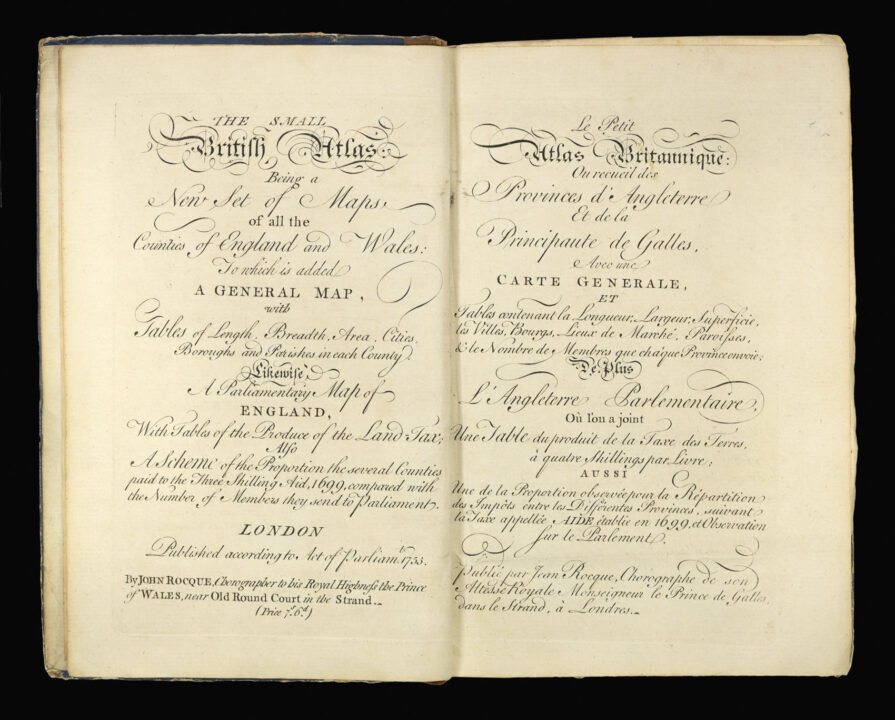 THE SMALL
British Atlas:
Being a
New Set of Maps
of all the
Counties of England and Wales:
To which is added
A GENERAL MAP,
with
Tables of Length, Breadth, Area, Cities,
Boroughs and Parishes in each County.
Likewise
A Parliamentary Map of
ENGLAND,
With Tables of the Produce of the Land Tax;
Also
A Scheme of the Proportion the several Counties
paid to the Three Shilling Aid, 1699, compared with
the Number of Members they send to Parliament.
LONDON
Published according to Act of Parliam.t 1753.
By JOHN ROCQUE, Chorographer to his Royal Highneſs the Prince
of WALES, near Old Round Court in the Strand.
(Price 7.s 6.d)
Le Petit
Atlas Britannique:
Ou recueil des
Provinces d'Angleterre
Et de la
Principaute de Galles,
Avec une
CARTE GENERALE,
ET
Tables contenant la Longueur, Largeur, Superficie,
les Villes, Bourgs, Lieux de Marché, Paroiſses,
& le Nombre de Membres que chaque Province envoie;
De Plus
L'Angleterre Parlementaire,
Où l'on a joint
Une Table du produit de la Taxe des Terres,
à quatre Shillings par Livre;
AUSSI
Une de la Proportion observée pour la Répartition
des Impôts entre les Différentes Provinces, suivant
la Taxe appellée AIDE établie en 1699, et Observation
sur le Parlement.
Publié par Jean Rocque, Chorographe de son
Altesse Royale Monseigneur le Prince de Galles,
dans le Strand, à Londres.